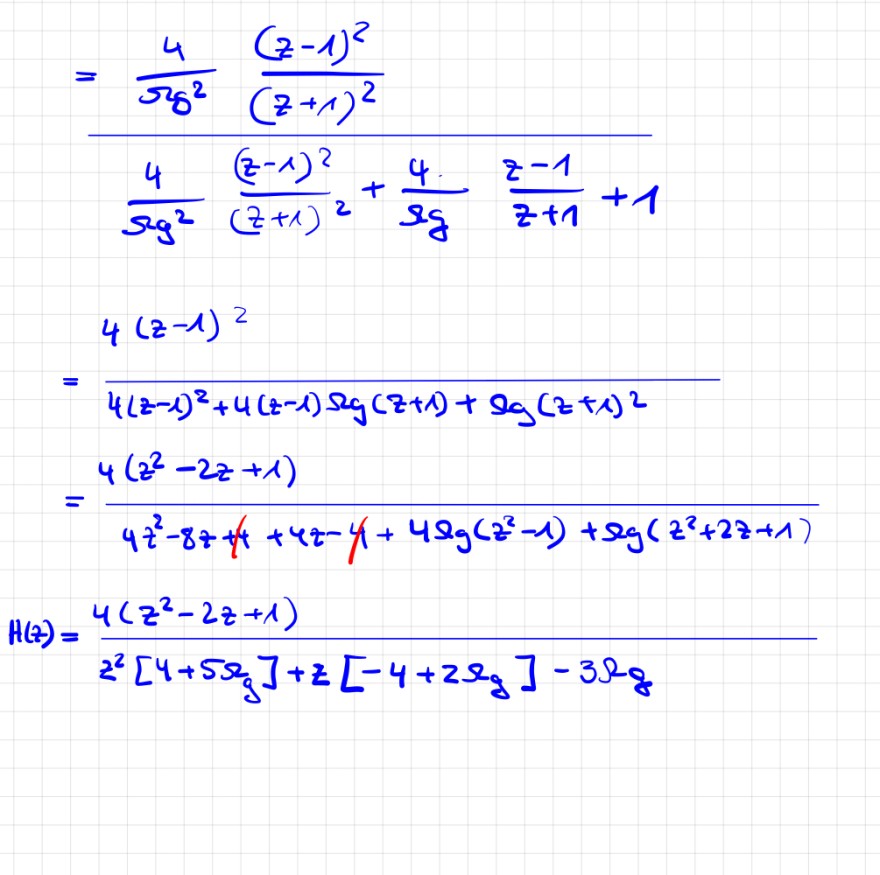 = 4/Ωg² (z-1)²/(z+1)²
4/Ωg² (z-1)²/(z+1)² + 4/Ωg z-1/z+1 + 1
4(z-1)²
=
4(z-1)²+4(z-1)Ωg(z+1)+Ωg(z+1)²
4(z²-2z+1)
=
4z²-8z+4+4z-4+4Ωg(z²-1)+Ωg(z²+2z+1)
4(z²-2z+1)
H(z)=
z²[4+5Ωg]+z[-4+2Ωg]-3Ωg